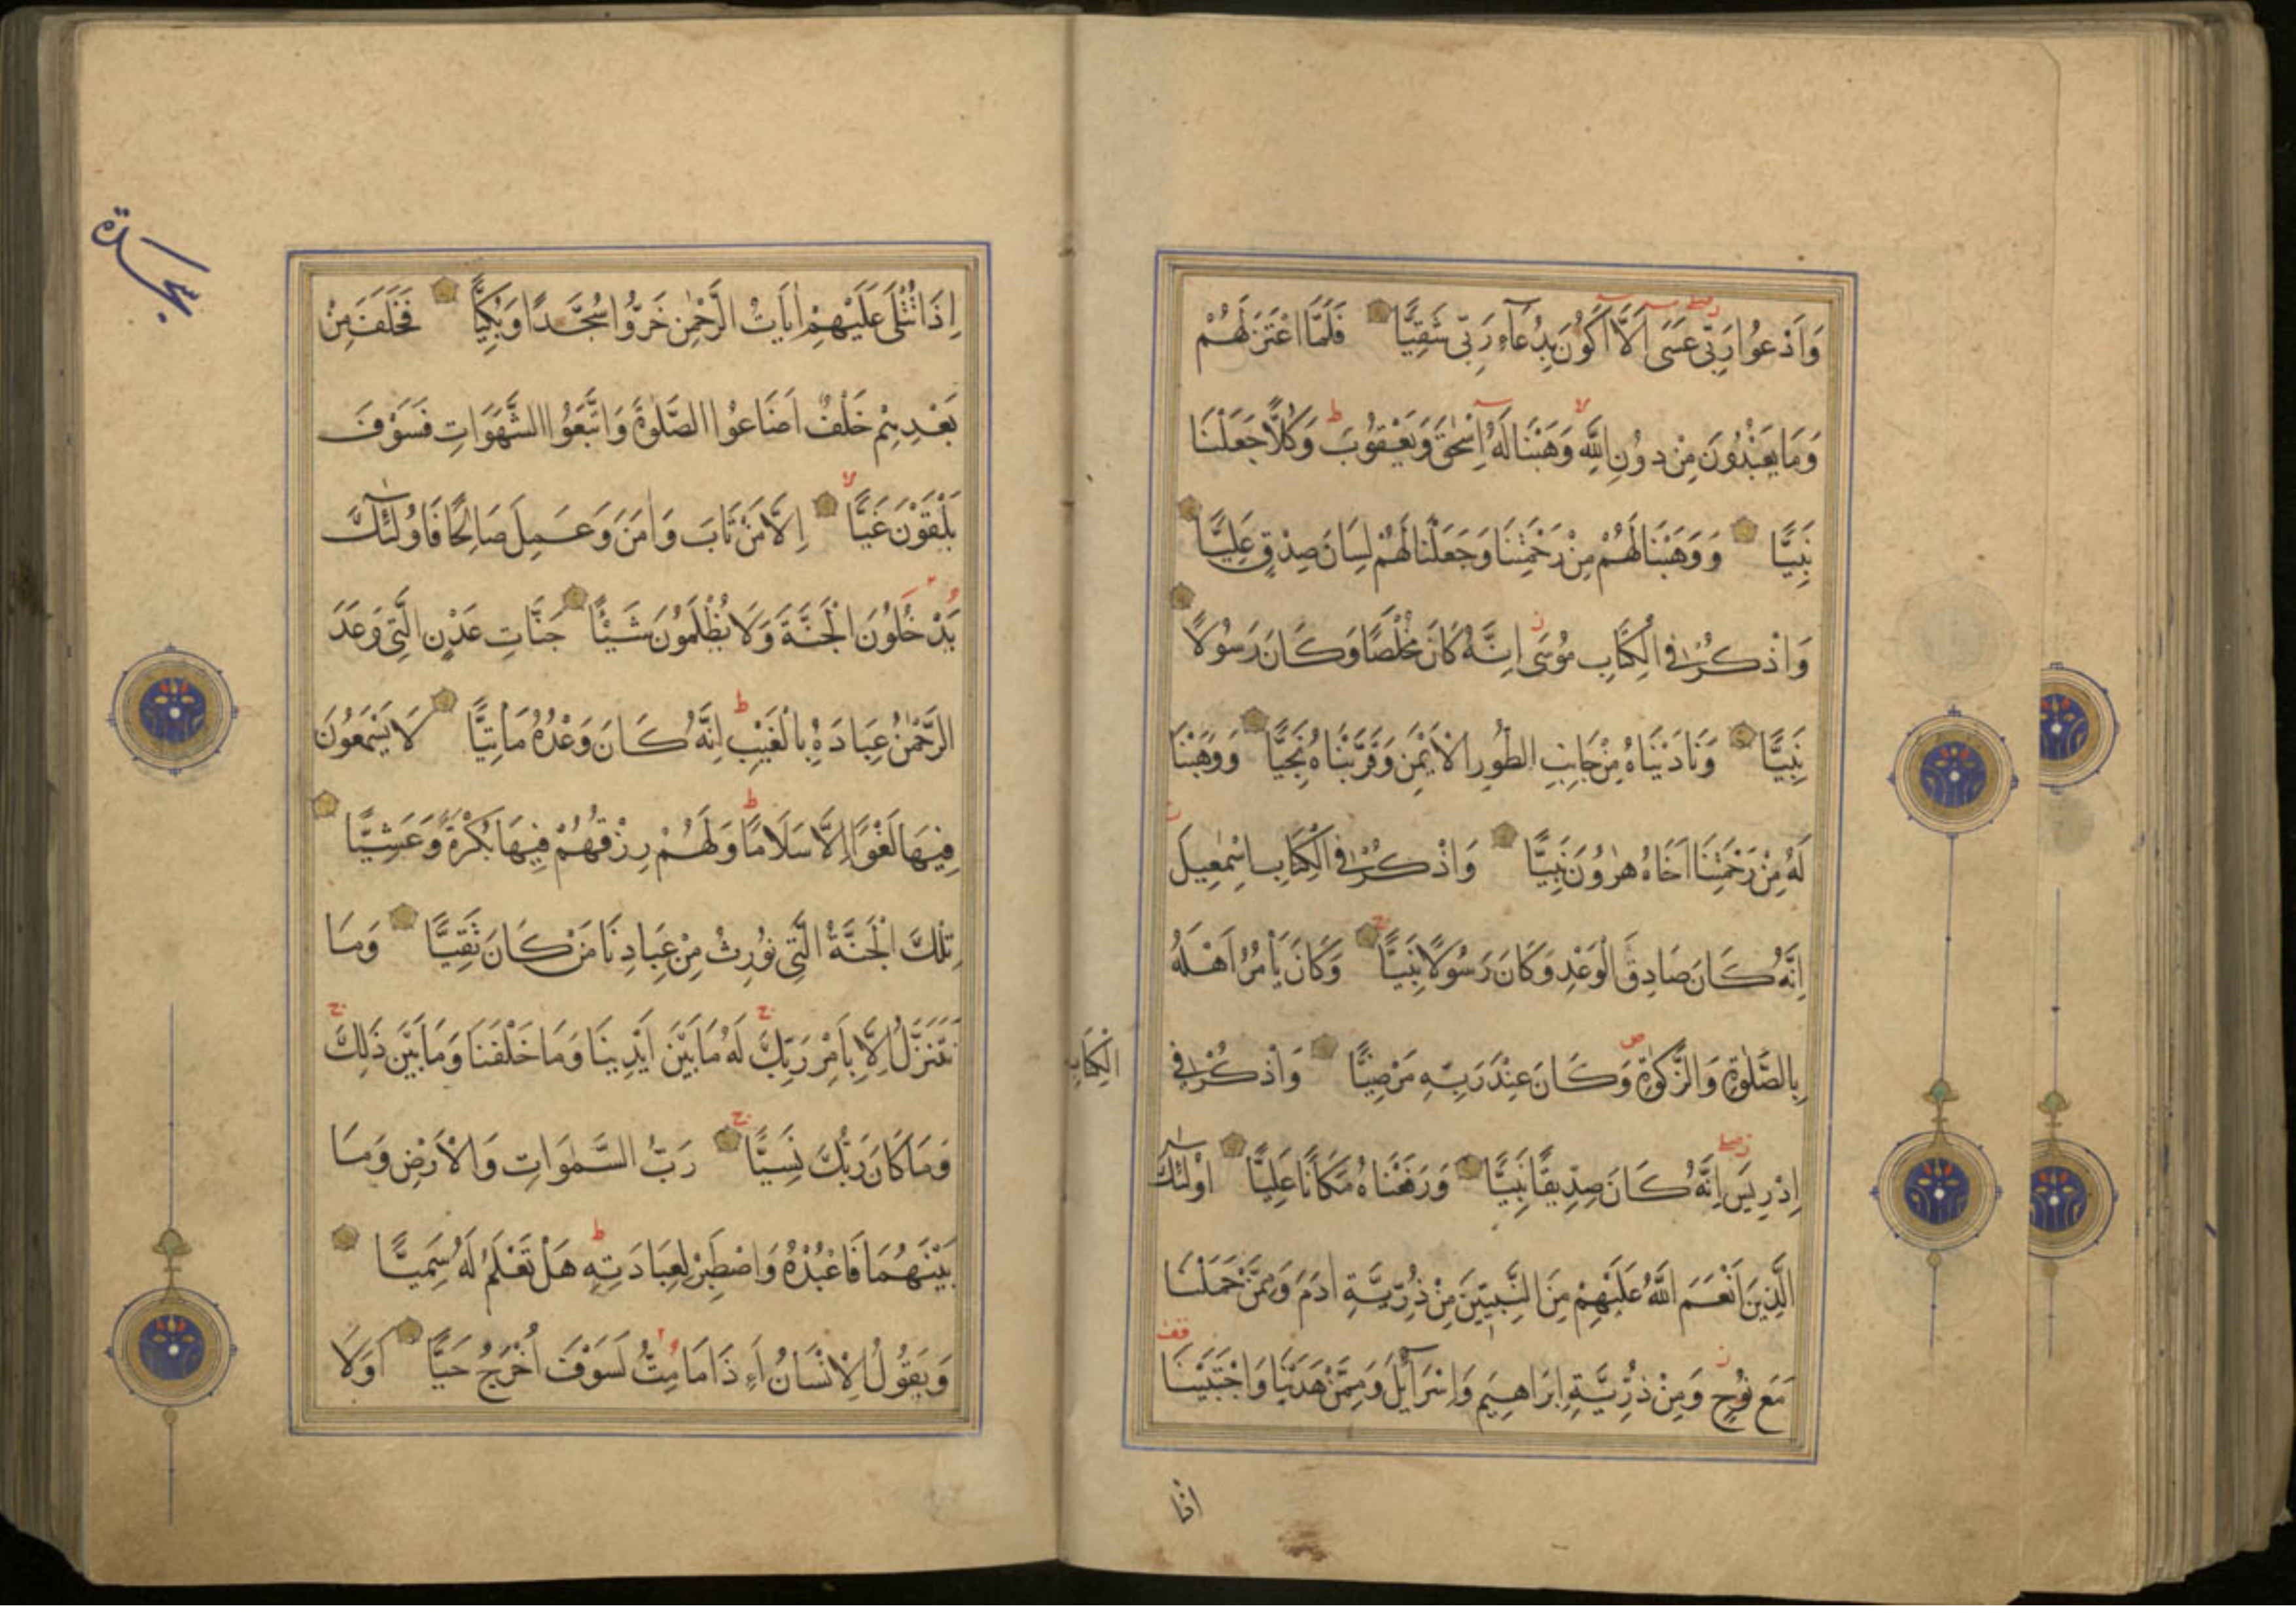 وَاَدْعُوا رَبِّي عَسَى اَلَّا اَكُونَ بِدُعَاءِ رَبِّي شَقِيًّا فَلَمَّا اعْتَزَلَهُمْ
وَمَا يَعْبُدُونَ مِنْ دُونِ اللَّهِ وَهَبْنَا لَهُ اِسْحٰقَ وَيَعْقُوبَ وَكُلًّا جَعَلْنَا
نَبِيًّا وَوَهَبْنَا لَهُمْ مِنْ رَحْمَتِنَا وَجَعَلْنَا لَهُمْ لِسَانَ صِدْقٍ عَلِيًّا
وَاذْكُرْ فِي الْكِتَابِ مُوسَى اِنَّهُ كَانَ مُخْلَصًا وَكَانَ رَسُولًا
نَبِيًّا وَنَادَيْنَاهُ مِنْ جَانِبِ الطُّورِ الْاَيْمَنِ وَقَرَّبْنَاهُ نَجِيًّا وَوَهَبْنَا
لَهُ مِنْ رَحْمَتِنَا اَخَاهُ هٰرُونَ نَبِيًّا وَاذْكُرْ فِي الْكِتَابِ اِسْمٰعِيلَ
اِنَّهُ كَانَ صَادِقَ الْوَعْدِ وَكَانَ رَسُولًا نَبِيًّا وَكَانَ يَأْمُرُ اَهْلَهُ
بِالصَّلٰوةِ وَالزَّكٰوةِ وَكَانَ عِنْدَ رَبِّهِ مَرْضِيًّا وَاذْكُرْ فِي
الْكِتَابِ
اِدْرِيسَ اِنَّهُ كَانَ صِدِّيقًا نَبِيًّا وَرَفَعْنَاهُ مَكَانًا عَلِيًّا اُولٰئِكَ
الَّذِينَ اَنْعَمَ اللَّهُ عَلَيْهِمْ مِنَ النَّبِيِّينَ مِنْ ذُرِّيَّةِ اٰدَمَ وَمِمَّنْ حَمَلْنَا
مَعَ نُوحٍ وَمِنْ ذُرِّيَّةِ اِبْرَاهِيمَ وَاِسْرَآئِيلَ وَمِمَّنْ هَدَيْنَا وَاجْتَبَيْنَا
اذا
سجدة
اِذَا تُتْلَى عَلَيْهِمْ اٰيَاتُ الرَّحْمٰنِ خَرُّوا سُجَّدًا وَبُكِيًّا فَخَلَفَ مِنْ
بَعْدِهِمْ خَلْفٌ اَضَاعُوا الصَّلٰوةَ وَاتَّبَعُوا الشَّهَوَاتِ فَسَوْفَ
يَلْقَوْنَ غَيًّا اِلَّا مَنْ تَابَ وَاٰمَنَ وَعَمِلَ صَالِحًا فَاُولٰئِكَ
يَدْخُلُونَ الْجَنَّةَ وَلَا يُظْلَمُونَ شَيْئًا جَنَّاتِ عَدْنٍ الَّتِي وَعَدَ
الرَّحْمٰنُ عِبَادَهُ بِالْغَيْبِ اِنَّهُ كَانَ وَعْدُهُ مَأْتِيًّا لَا يَسْمَعُونَ
فِيهَا لَغْوًا اِلَّا سَلَامًا وَلَهُمْ رِزْقُهُمْ فِيهَا بُكْرَةً وَعَشِيًّا
تِلْكَ الْجَنَّةُ الَّتِي نُورِثُ مِنْ عِبَادِنَا مَنْ كَانَ تَقِيًّا وَمَا
نَتَنَزَّلُ اِلَّا بِاَمْرِ رَبِّكَ لَهُ مَا بَيْنَ اَيْدِينَا وَمَا خَلْفَنَا وَمَا بَيْنَ ذَلِكَ
وَمَا كَانَ رَبُّكَ نَسِيًّا رَبُّ السَّمٰوَاتِ وَالْاَرْضِ وَمَا
بَيْنَهُمَا فَاعْبُدْهُ وَاصْطَبِرْ لِعِبَادَتِهِ هَلْ تَعْلَمُ لَهُ سَمِيًّا
وَيَقُولُ الْاِنْسَانُ اَءِذَا مَا مِتُّ لَسَوْفَ اُخْرَجُ حَيًّا اَوَلَا